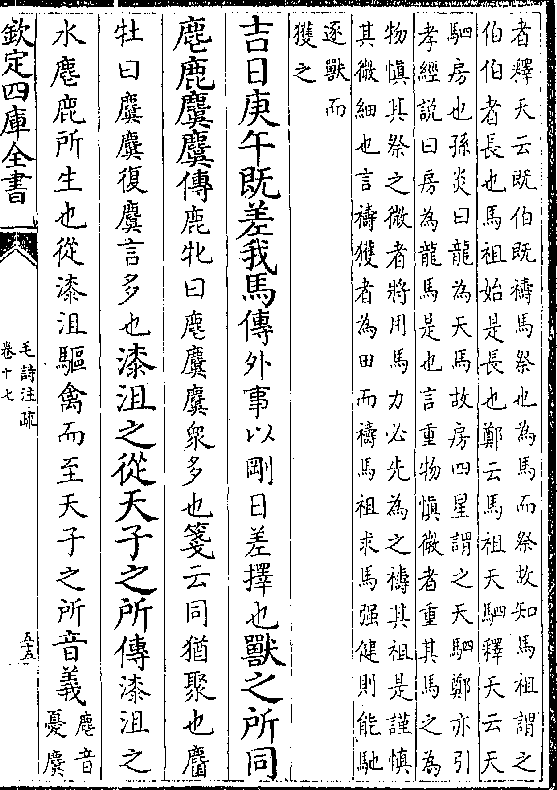 者釋天云既伯既禱馬祭也為馬而祭故知馬祖謂之
伯伯者長也馬祖始是長也鄭云馬祖天駟釋天云天
駟房也孫炎曰龍為天馬故房四星謂之天駟鄭亦引
孝經說曰房為龍馬是也言重物慎微者重其馬之為
物慎其祭之微者將用馬力必先為之禱其祖是謹慎
其微細也言禱獲者為田而禱馬祖求馬强健則能馳
逐獸而
獲之
吉日庚午既差我馬傳外事以剛日差擇也獸之所同
麀鹿麌麌傳鹿牝曰麀麌麌衆多也箋云同猶聚也麕
牡曰麌麌復麌言多也漆沮之從天子之所傳漆沮之
水麀鹿所生也從漆沮驅禽而至天子之所音義
麀音
憂麌
欽定四庫全書
毛詩注疏
卷十七
五十五